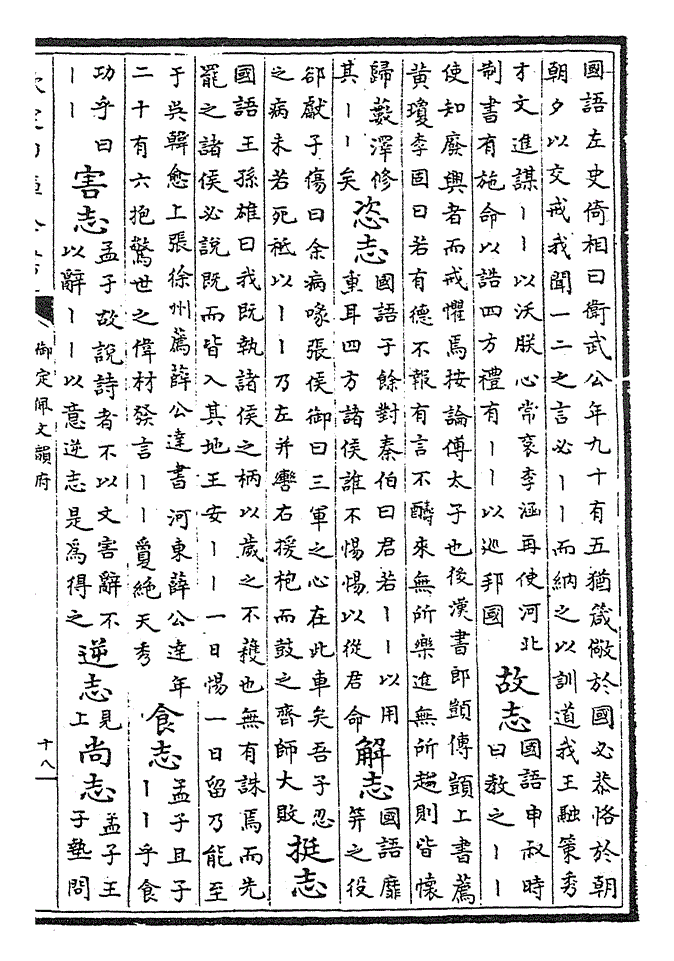 國語左史倚相曰衛武公年九十有五猶箴儆於國必恭恪於朝
朝夕以交戒我聞一二之言必丨丨而納之以訓道我王融策秀
才文進謀丨丨以沃朕心常袞李涵再使河北
制書有施命以誥四方禮有丨丨以巡邦國
故志
國語申叔時
曰教之丨丨
使知廢興者而戒懼焉按論傅太子也後漢書郎顗傳顗上書薦
黃瓊李固曰若有德不報有言不醻來無所樂進無所趨則皆懷
歸藪澤修
其丨丨矣
恣志
國語子餘對秦伯曰君若丨丨以用
重耳四方諸侯誰不惕惕以從君命
解志
國語靡
笄之役
郤獻子傷曰余病喙張侯御曰三軍之心在此車矣吾子忍
之病未若死祗以丨丨乃左并轡右援枹而鼓之齊師大敗
挺志
國語王孫雄曰我既執諸侯之柄以歲之不穫也無有誅焉而先
罷之諸侯必說既而皆入其地王安丨丨一日惕一日留乃能至
于吳韓愈上張徐州薦薛公達書河東薛公達年
二十有六抱驚世之偉材發言丨丨敻絶天秀
食志
孟子且子
丨丨乎食
功乎曰
丨丨
害志
孟子故說詩者不以文害辭不
以辭丨丨以意逆志是為得之
逆志
見
上
尚志
孟子王
子墊問
御定佩文韻府
十八